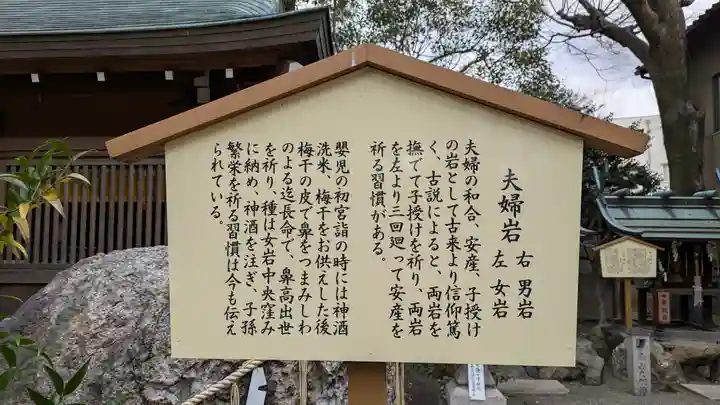 夫婦岩 右 男岩
左 女岩
夫婦の和合、安産、子授け
の岩として古来より信仰篤
く、古説によると、両岩を
撫でて子授けを祈り、両岩
を左より三回廻って安産を
祈る習慣がある。
嬰児の初宮詣の時には神酒
洗米、梅干をお供えした後
梅干の皮で鼻をつまみしわ
のよる迄長命で、鼻高出世
を祈り、種は女岩中央窪み
に納め、神酒を注ぎ、子孫
繁栄を祈る習慣は今も伝え
られている。